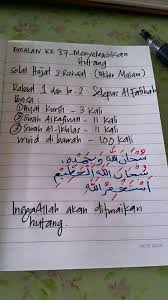 AMALAN KE 37 - Menyelesaikan
hutang
Solat Hajat 2 Rakaat (Malam)
Rakaat 1 dan ke-2 - Selepas Al Fatihah
baca :
① Ayat Kursi - 3 Kali
② Surah Al-Kafirun - 11 Kali
③ Surah Al-Ikhlas - 11 Kali
Wirid di bawah - 100 Kali
سُبْحَانَ اللهِ وَبِحَمْدِهِ،
سُبْحَانَ اللهِ الْعَظِيْمِ
أَسْتَغْفِرُ اللهَ
InsyaAllah akan
hutang.